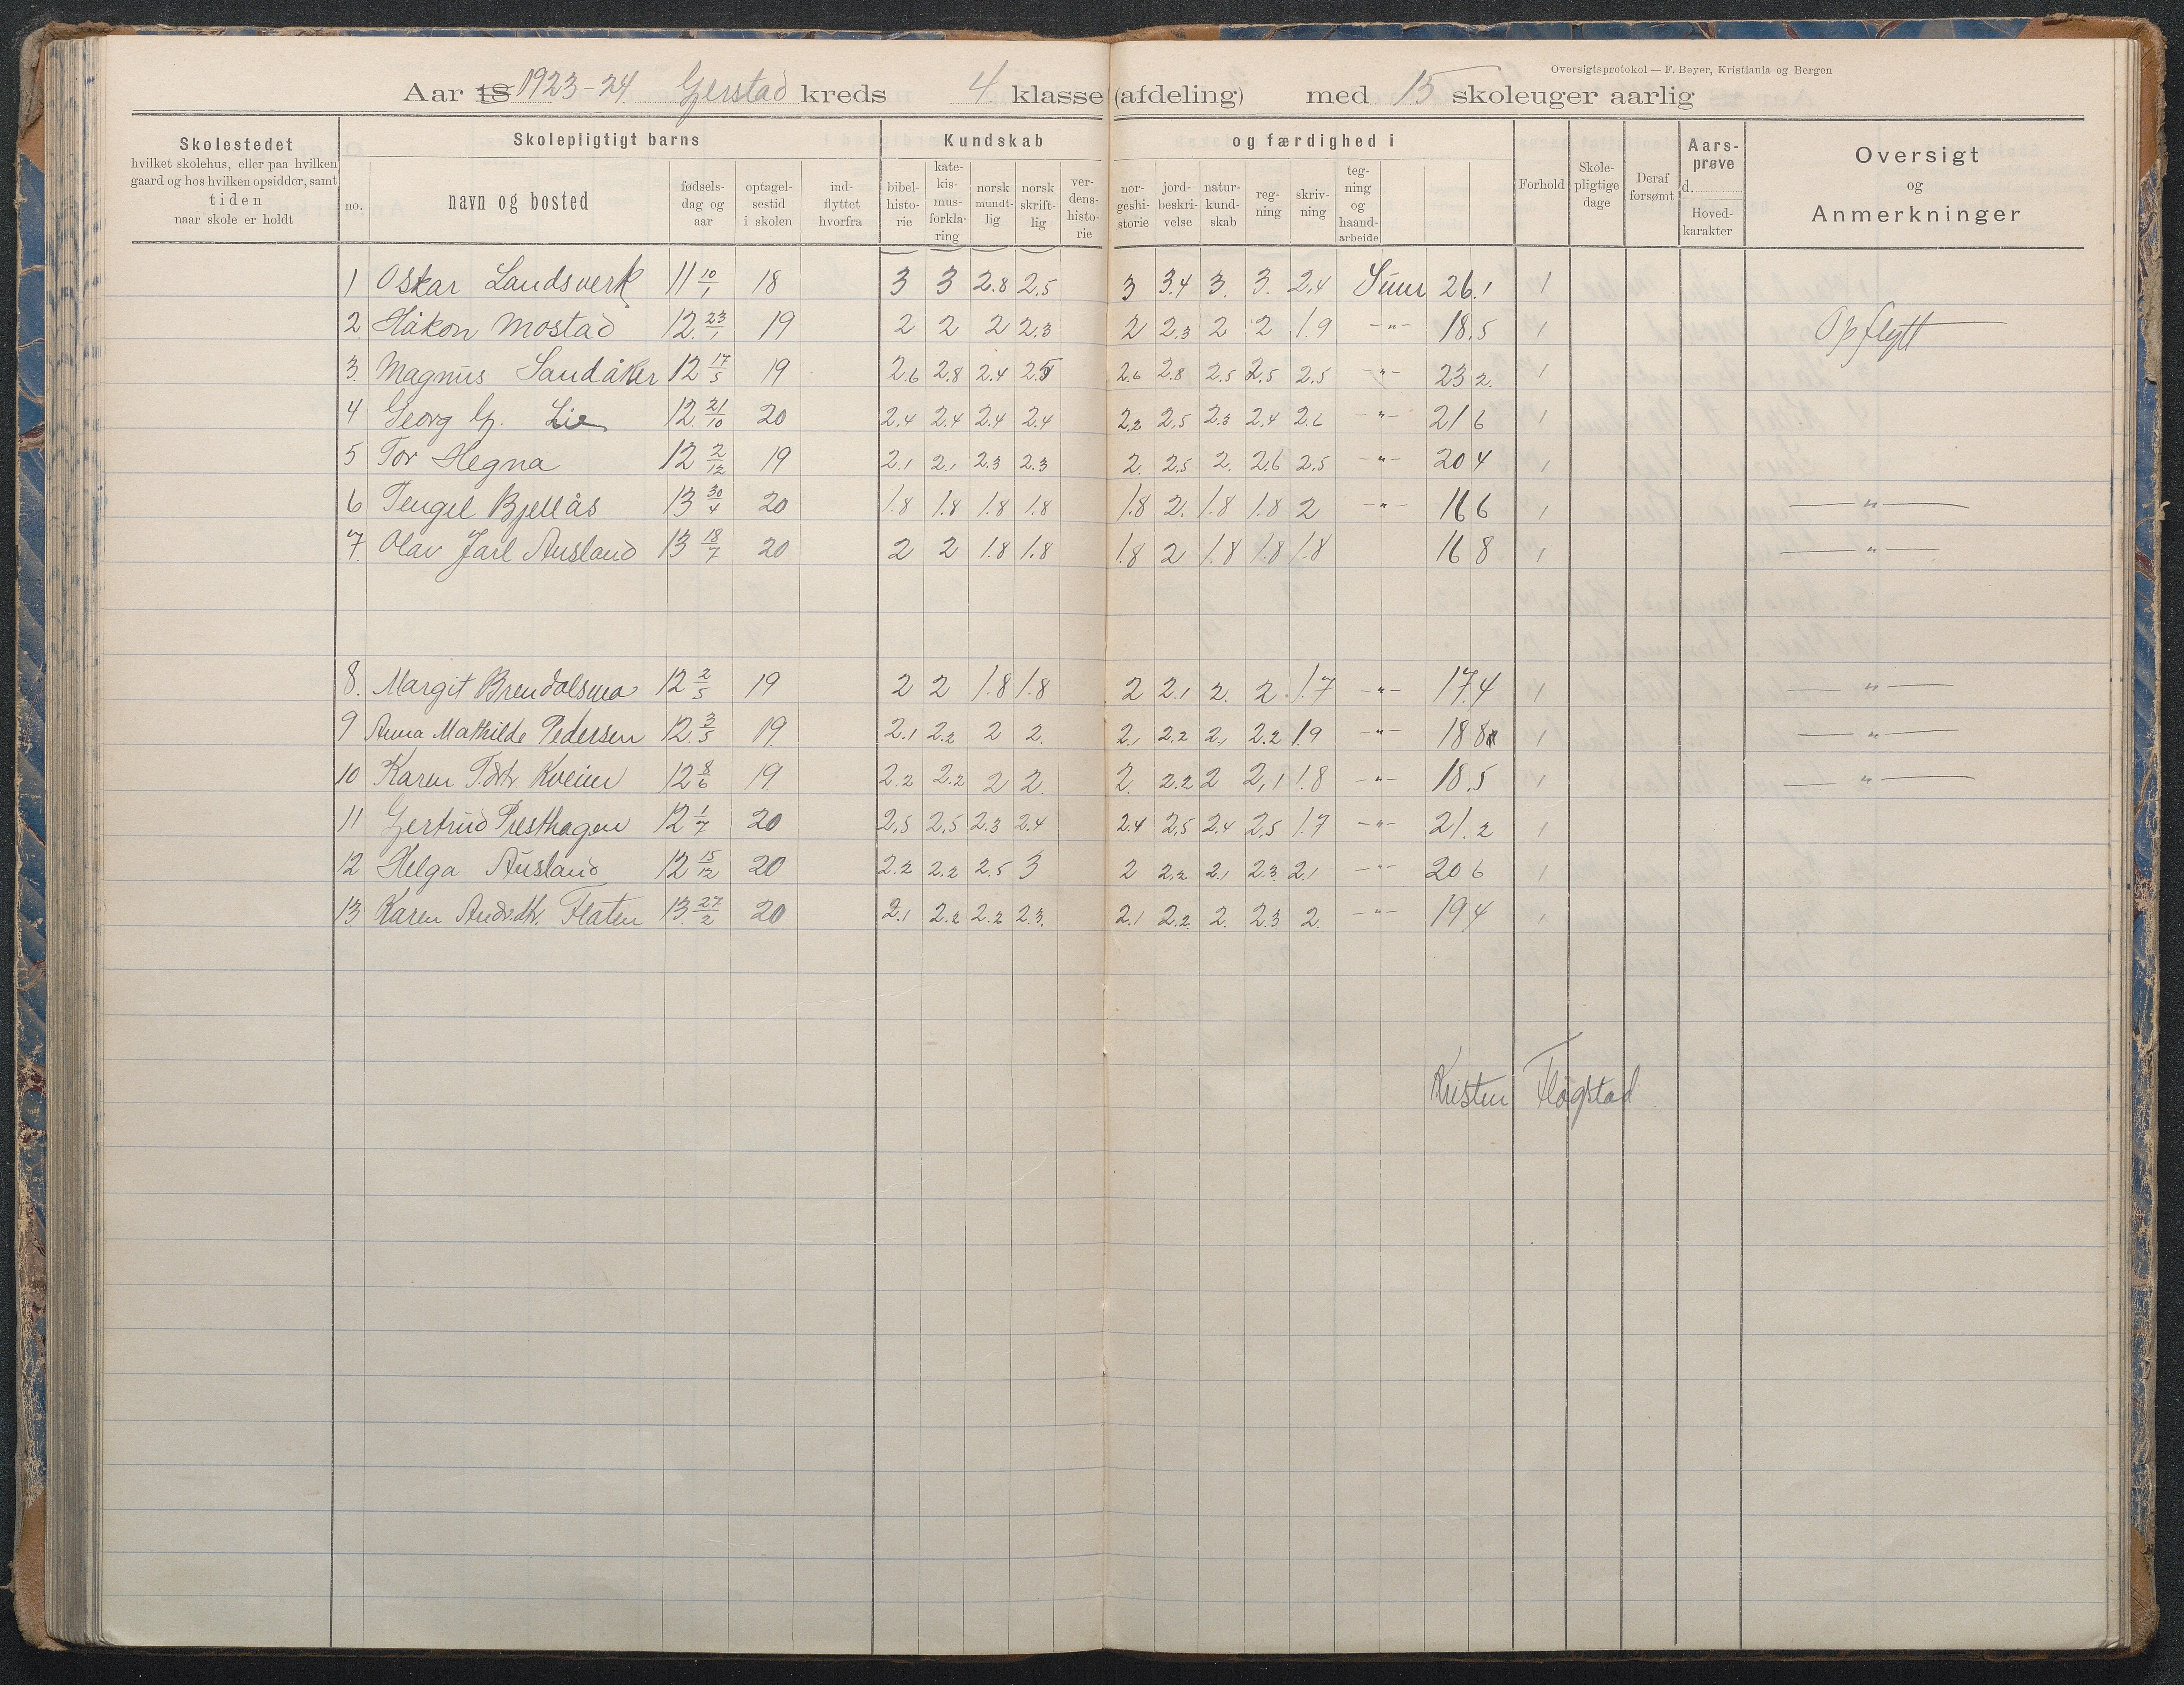 Oversigtsprotokol — F. Beyer, Kristiania og Bergen
Aar 18 1923-24 Gjerstad kreds 4. klasse (afdeling) med 15 skoleuger aarlig
Skolestedet
hvilket skolehus, eller paa hvilken
gaard og hos hvilken opsidder, samt
tiden
naar skole er holdt
Skolepligtigt barns
no. navn og bosted
fødsels-
dag og
aar
optagel-
sestid
i skolen
ind-
flyttet
hvorfra
Kundskab og færdighed i
bibel-
histo-
rie
kate-
kis-
mus-
forkla-
ring
norsk
mundt-
lig
norsk
skrift-
lig
ver-
dens-
histo-
rie
nor-
geshi-
storie
jord-
beskri-
velse
natur-
kund-
skab
reg-
ning
skriv-
ning
teg-
ning
og
haand-
arbeide
Forhold
Skole-
pligtige
dage
Deraf
forsømt
Aars-
prøve
d.
Hoved-
karakter
Oversigt
og
Anmerkninger
1 Oskar Landsverk 11 10/1 18 3 3 2.8 2.5 3 3.4 3. 3. 2.4 Sum 26.1 1
2. Håkon Mostad 12. 23/1 19 2 2 2 2.3 2 2.3 2 2 1.9 -"- 18.5 1 Opflytt
3. Magnus Sandåker 12 17/5 19 2.6 2.8 2.4 2.5 2.6 2.8 2.5 2.5 2.5 -"- 23 2. 1
4 Georg G. Lie 12 21/10 20 2.4 2.4 2.4 2.4 2.2 2.5 2.3 2.4 2.6 -"- 21 6 1
5 Tor Hegna 12 2/12 19 2.1 2.1 2.3 2.3 2. 2.5 2. 2.6 2.5 -"- 20 4 1
6 Tengel Bjellås 13 30/4 20 1.8 1.8 1.8 1.8 1.8 2. 1.8 1.8 2 -"- 16 6 1 -"-
7. Olav Jarl Ausland 13 18/7 20 2 2 1.8 1.8 1.8 2 1.8 1.8 1.8 16 8 1 -"-
8. Margit Brendalsmo 12 2/5 19 2 2 1.8 1.8 2 2.1 2. 2. 1.7 -"- 17.4 1 -"-
9 Anna Mathilde Pedersen 12. 3/5 19. 2.1 2.2 2 2. 2.1 2.2 2.1 2.2 1.9 -"- 18 8 1 -"-
10 Karen T.dtr. Kveim 12 8/6 19. 2.2 2.2 2 2. 2. 2.2 2 2.1 1.8 -"- 18.5 1 -"-
11 Gertrud Presthagen 12 1/7 20 2.5 2.5 2.3 2.4 2.4 2.5 2.4 2.5 1.7 -"- 21.2 1
12 Helga Ausland 12 15/12 20 2.2 2.2 2.5 3 2 2.2 2.1 2.3 2.1 -"- 20 6 1
13. Karen And.dtr. Flaten 13. 27/2 20 2.1 2.2 2.2 2.3. 2.1 2.2. 2. 2.3 2. -"- 19 4 1
Kristen Fløgstad